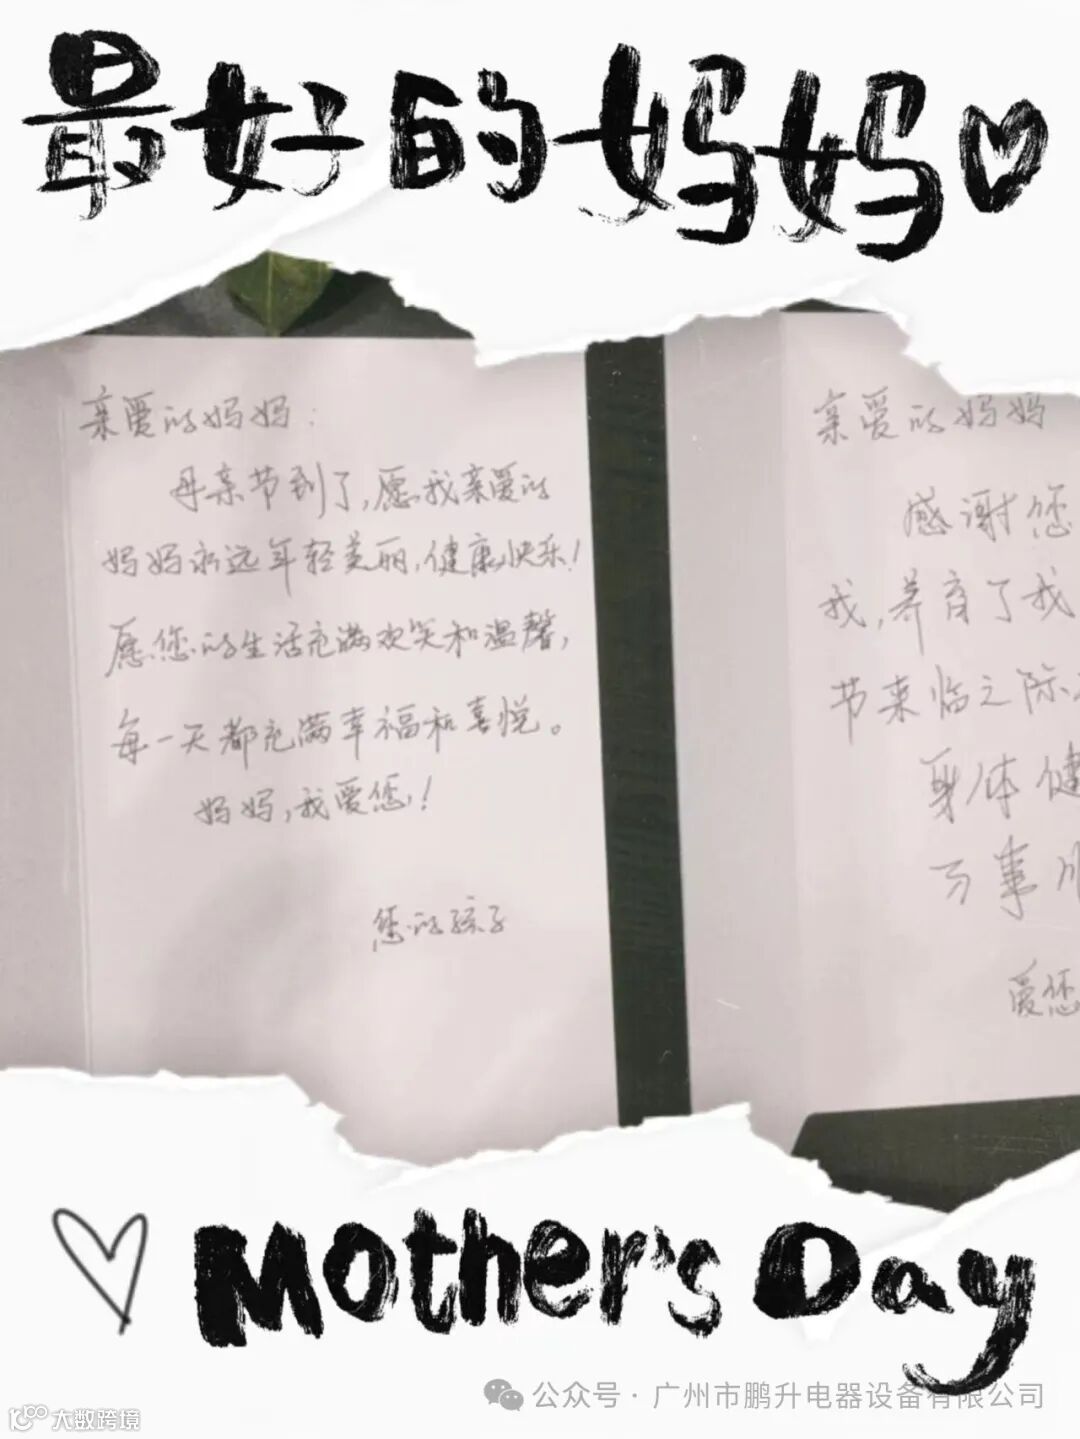 最好的妈妈
亲爱的妈妈：
母亲节到了，愿我亲爱的
妈妈永远年轻美丽，健康快乐！
愿您的生活充满欢笑和温馨，
每一天都充满幸福和喜悦。
妈妈，我爱您！
您的孩子
亲爱的妈妈
感谢您
我，养育了我
节来临之际
身体健
万事
爱您
Mother's Day
公众号·广州市鹏升电器设备有限公司
大数跨境